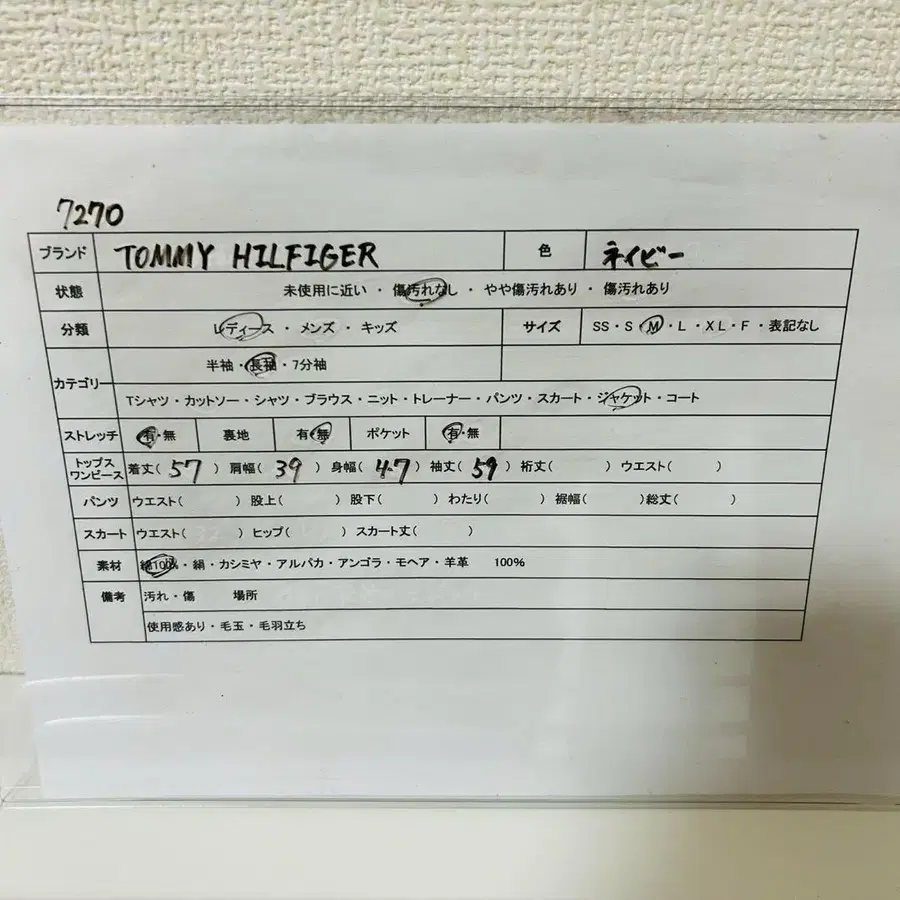 7270
ブランド TOMMY HILFIGER 色 ネイビー
状態 未使用に近い ・ 傷汚れなし ・ やや傷汚れあり ・ 傷汚れあり
分類 レディース ・ メンズ ・ キッズ サイズ SS・S・M・L・XL・F・表記なし
カテゴリー 半袖・長袖・7分袖
Tシャツ・カットソー・シャツ・ブラウス・ニット・トレーナー・パンツ・スカート・ジャケット・コート
ストレッチ 有・無 裏地 有・無 ポケット 有・無
トップス ワンピース 着丈( 57 ) 肩幅( 39 ) 身幅( 47 ) 袖丈( 59 ) 裄丈( ) ウエスト( )
パンツ ウエスト( ) 股上( ) 股下( ) わたり( ) 裾幅( ) 総丈( )
スカート ウエスト( ) ヒップ( ) スカート丈( )
素材 綿100%・絹・カシミヤ・アルパカ・アンゴラ・モヘア・羊革 100%
備考 汚れ・傷 場所
使用感あり・毛玉・毛羽立ち